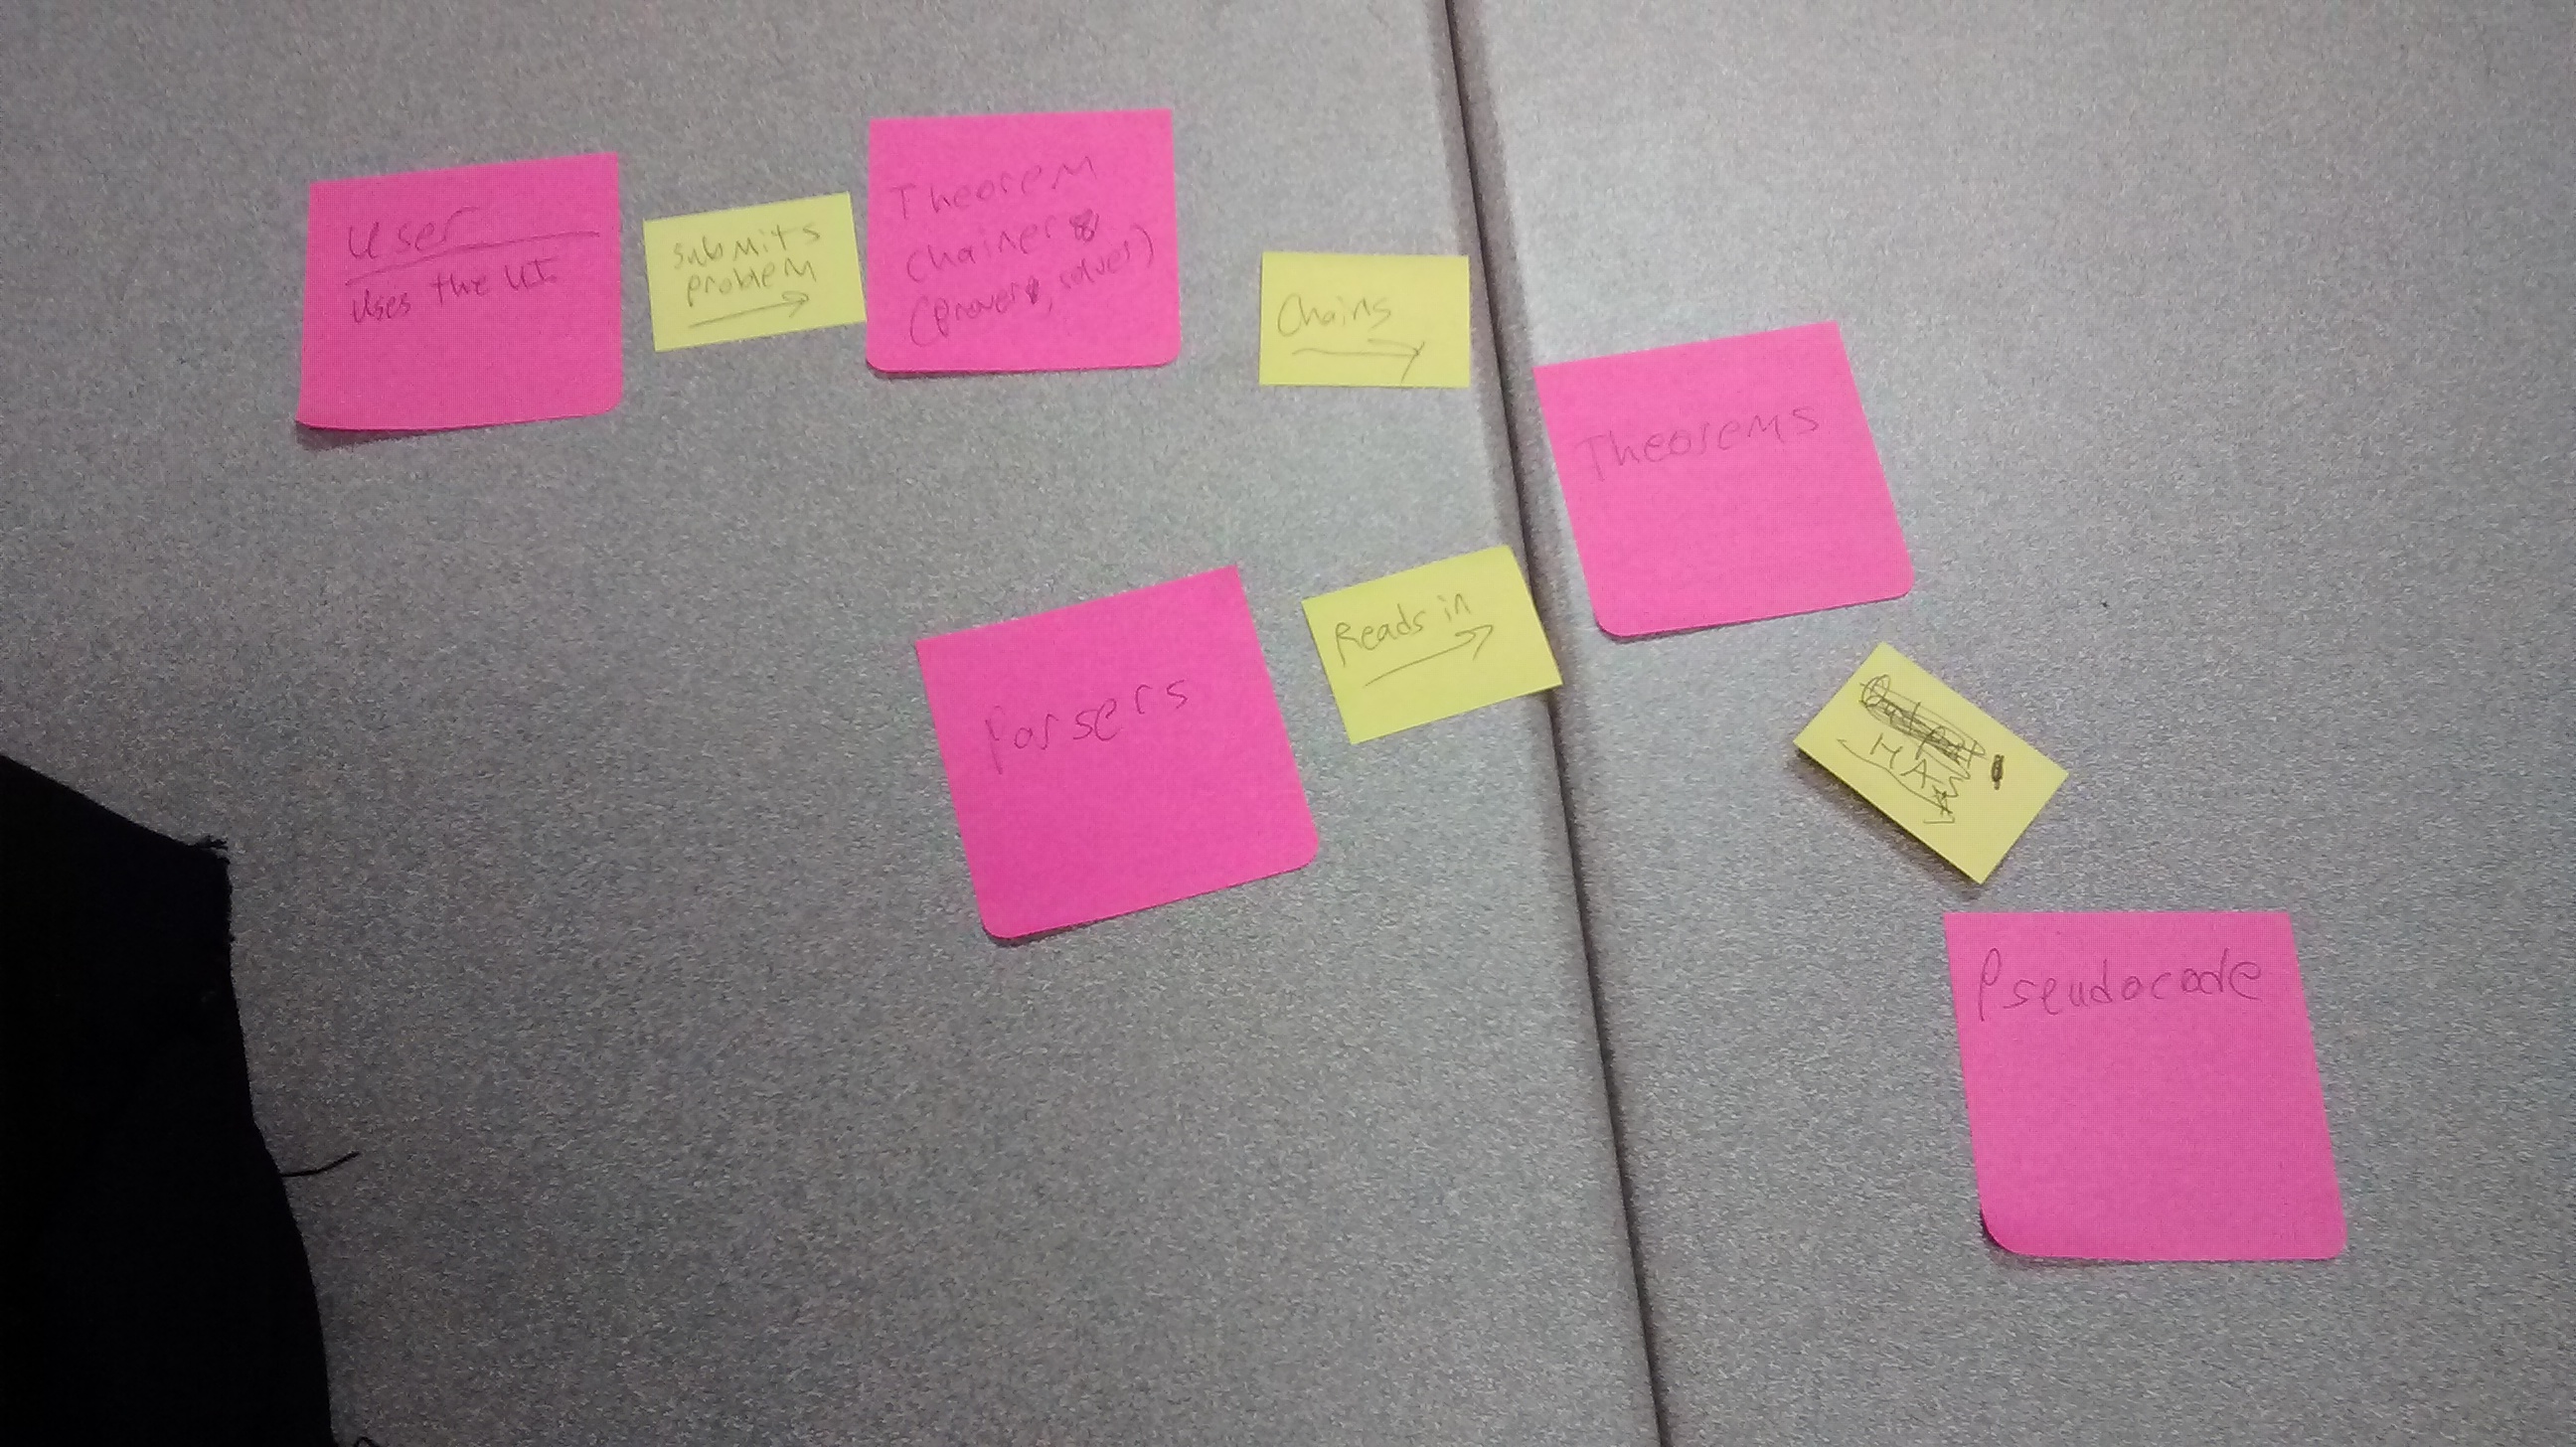 User
Uses the UI
submits
problem
Theorem
Chainer
(prover, solver)
Chains
Theorems
Parsers
Reads in
HAS
Pseudocode